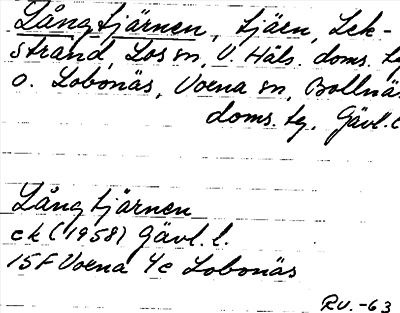 Långtjärnen, tjärn, Lek-
strand, Los sn, V. Häls. doms. tg
o. Lobonäs, Voxna sn, Bollnäs
doms. tg. Gävl. l
Långtjärnen
ek (1958) Gävl. l.
15F Voxna 4c Lobonäs
RV. -63